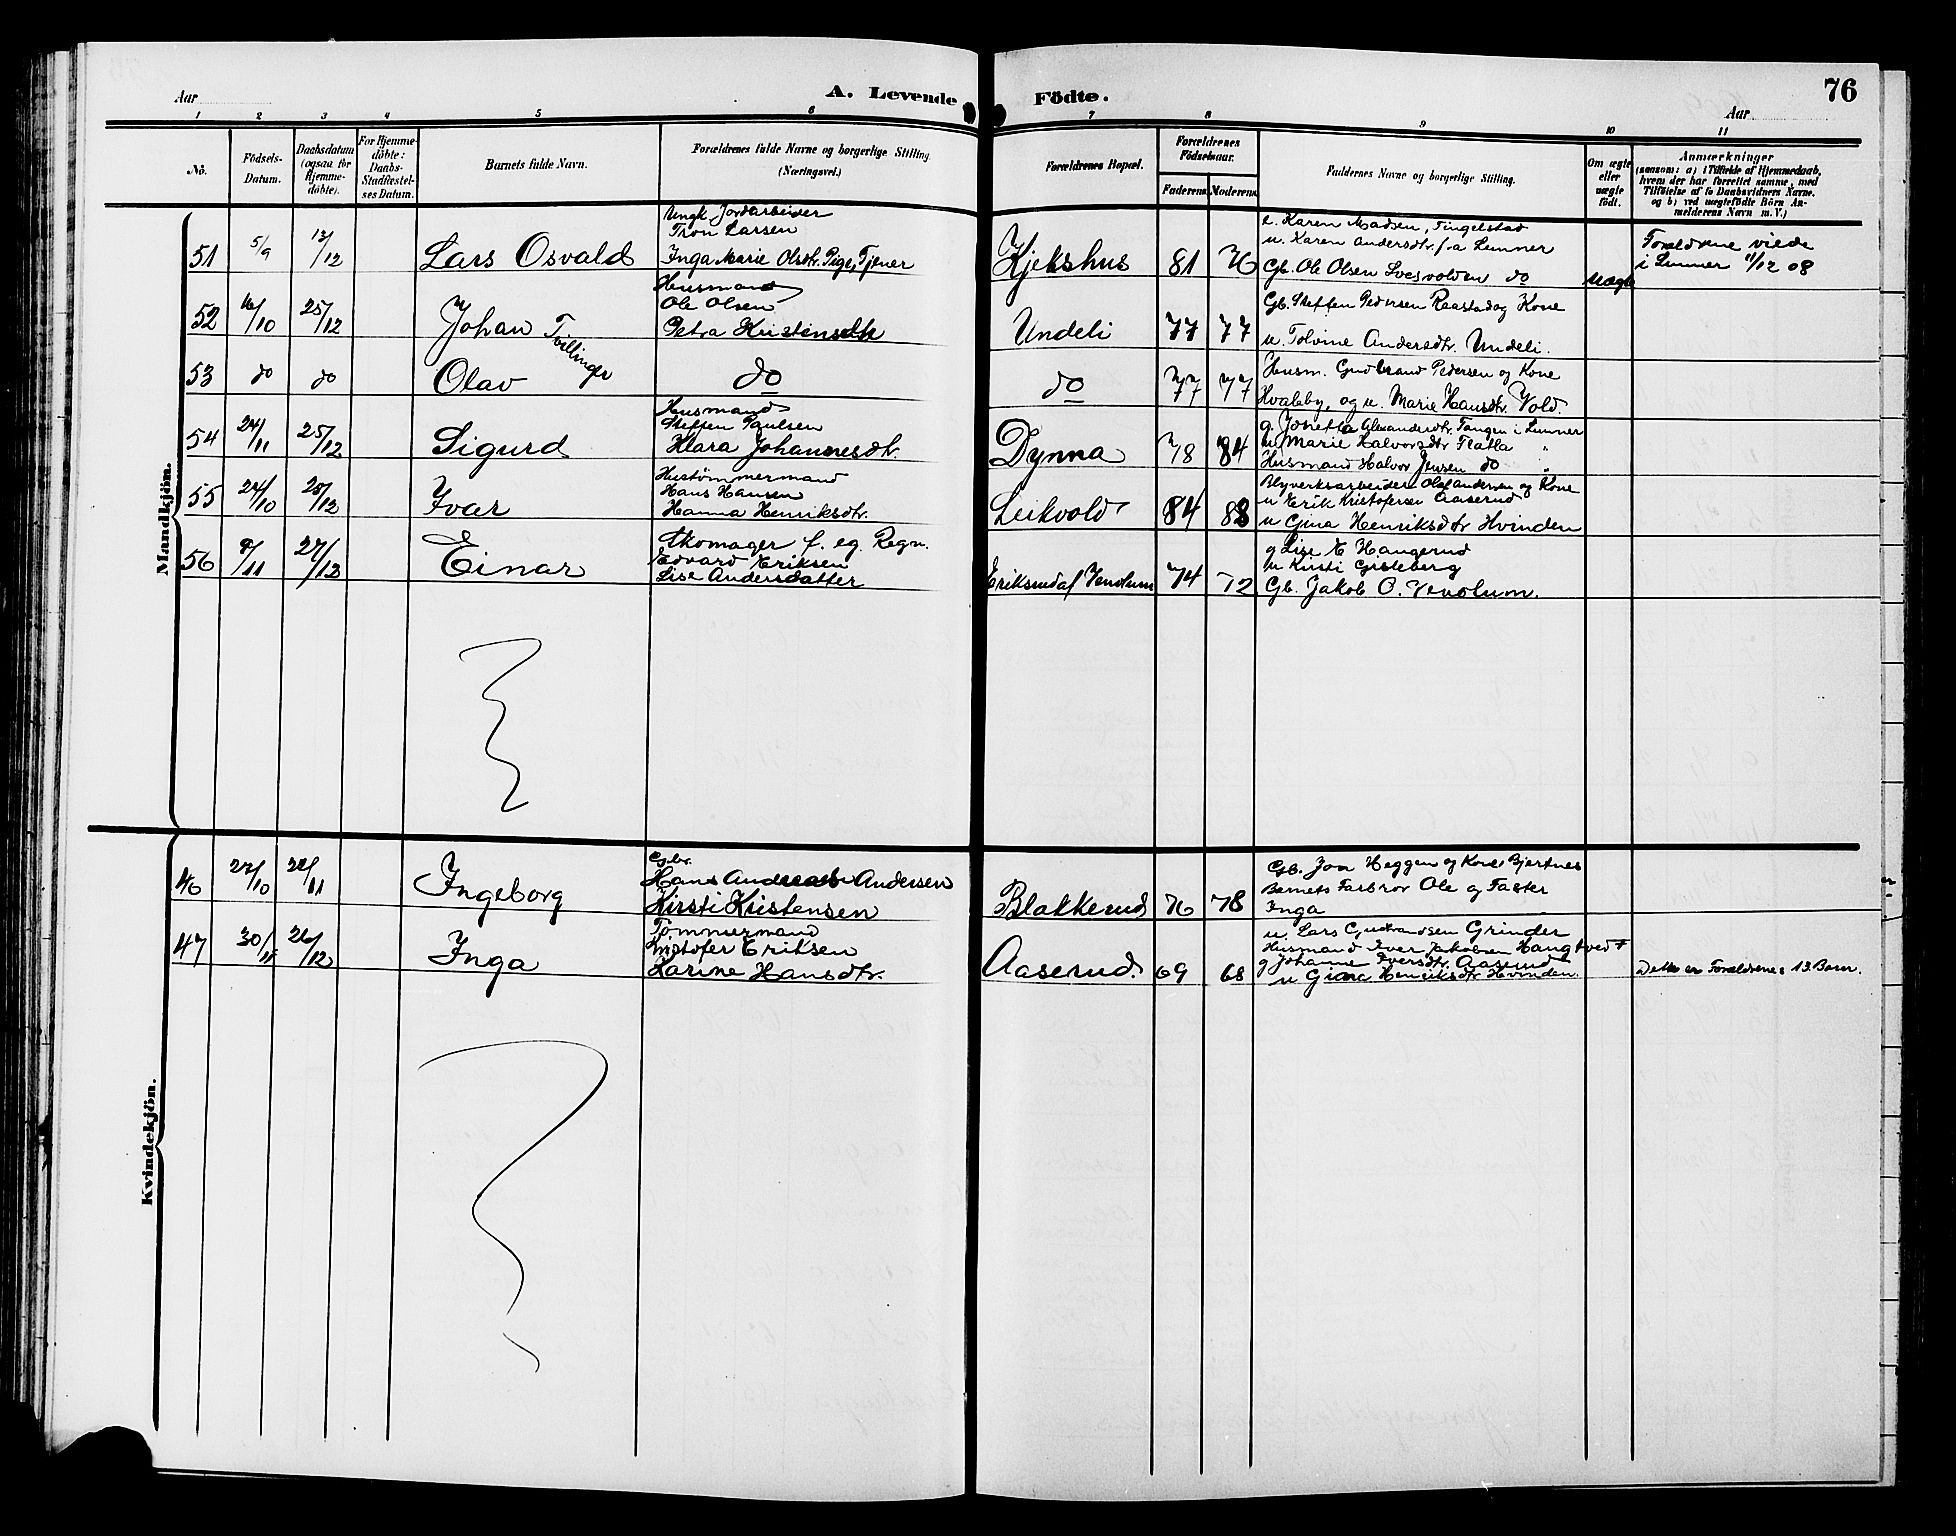 A. Levende Födte. 76
Aar Aar
1 2 3 4 5 6 7 8 9 10 11
No.
Födsels-Datum.
Daabsdatum (ogsaa for Hjemme-döbte).
For Hjemme-döbte: Daabs-Stadfæstelses Datum.
Barnets fulde Navn.
Forældrenes fulde Navne og borgerlige Stilling. (Næringsvei.)
Forældrenes Bopæl.
Forældrenes Födselsaar.
Faderens. Moderens.
Faddernes Navne og borgerlige Stilling.
Om ægte eller uægte födt.
Anmærkninger (saasom: a) i Tilfælde af Hjemmedaab, hvem der har forrettet samme, med Tilföielse af to Daabsvidners Navne, og b) ved uægtefödte Börn Anmelderens Navn m. V.)
Mandkjön.
51 5/9 13/12 Lars Osvald
Ungk. Jordarbeider
Tron Larsen
Inga Marie Olsdtr. Pige, Tjener
Kjekshus 81 76
u. Karen Andersdtr. f a Lunner
Gb. Ole Olsen do
Uægte
Forældrene viede
i Lunner 11/12 08
52 16/10 25/12 Johan Tvillinger
Husmand
Ole Olsen
Petra Kristensdtr
Undeli 77 77
Gb. Steffen Pedersen Raastad og Kone
u. Tolvine Andersdtr. Undeli.
53 do do Olav do do 77 77
Husm. Gudbrand Pedersen og Kone
Hvaleby, og u. Marie Hansdtr. Vold.
54 24/11 25/12 Sigurd
Husmand
Steffen Paulsen
Klara Johannesdtr.
Dynna 78 84
g. Josetta Alexandersdtr. Tangen i Lunner
u Marie Halvorsdtr Flatla
Husmand Halvor Jensen do
55 24/10 25/12 Ivar
Hustømmermand
Hans Hansen
Hanna Henriksdtr.
Leikvold 84 88
Blyverksarbeider Olaf Andersen og Kone
u Erik Kristofersen Aaserud
u Gina Henriksdtr Hvinden
56 9/11 27/12 Einar
Skomager f. eg. Regn.
Edvard Eriksen
Lise Andersdatter
74 72
g Lise E Haugerud
u Kirsti Gisleberg
Gb. Jakob O.
Kvindekjön.
46 27/10 22/11 Ingeborg
Gbr.
Hans Andreas Andersen
Kirsti Kristensen
Blakkerud 76 78
Gb. Jon Heggen og Kone Bjertnes
Barnets Farbror Ole og Faster
Inga
47 30/11 26/12 Inga
Tømmermand
Kristofer Eriksen
Karine Hansdtr.
Aaserud. 69 68
u. Lars Gudbrandsen Grinder
Husmand Iver Jakobsen Haugtvedt
g Johanne Iversdtr. Aaserud
u Gina Henriksdtr Hvinden.
Dette er Forældrenes 13. Barn.